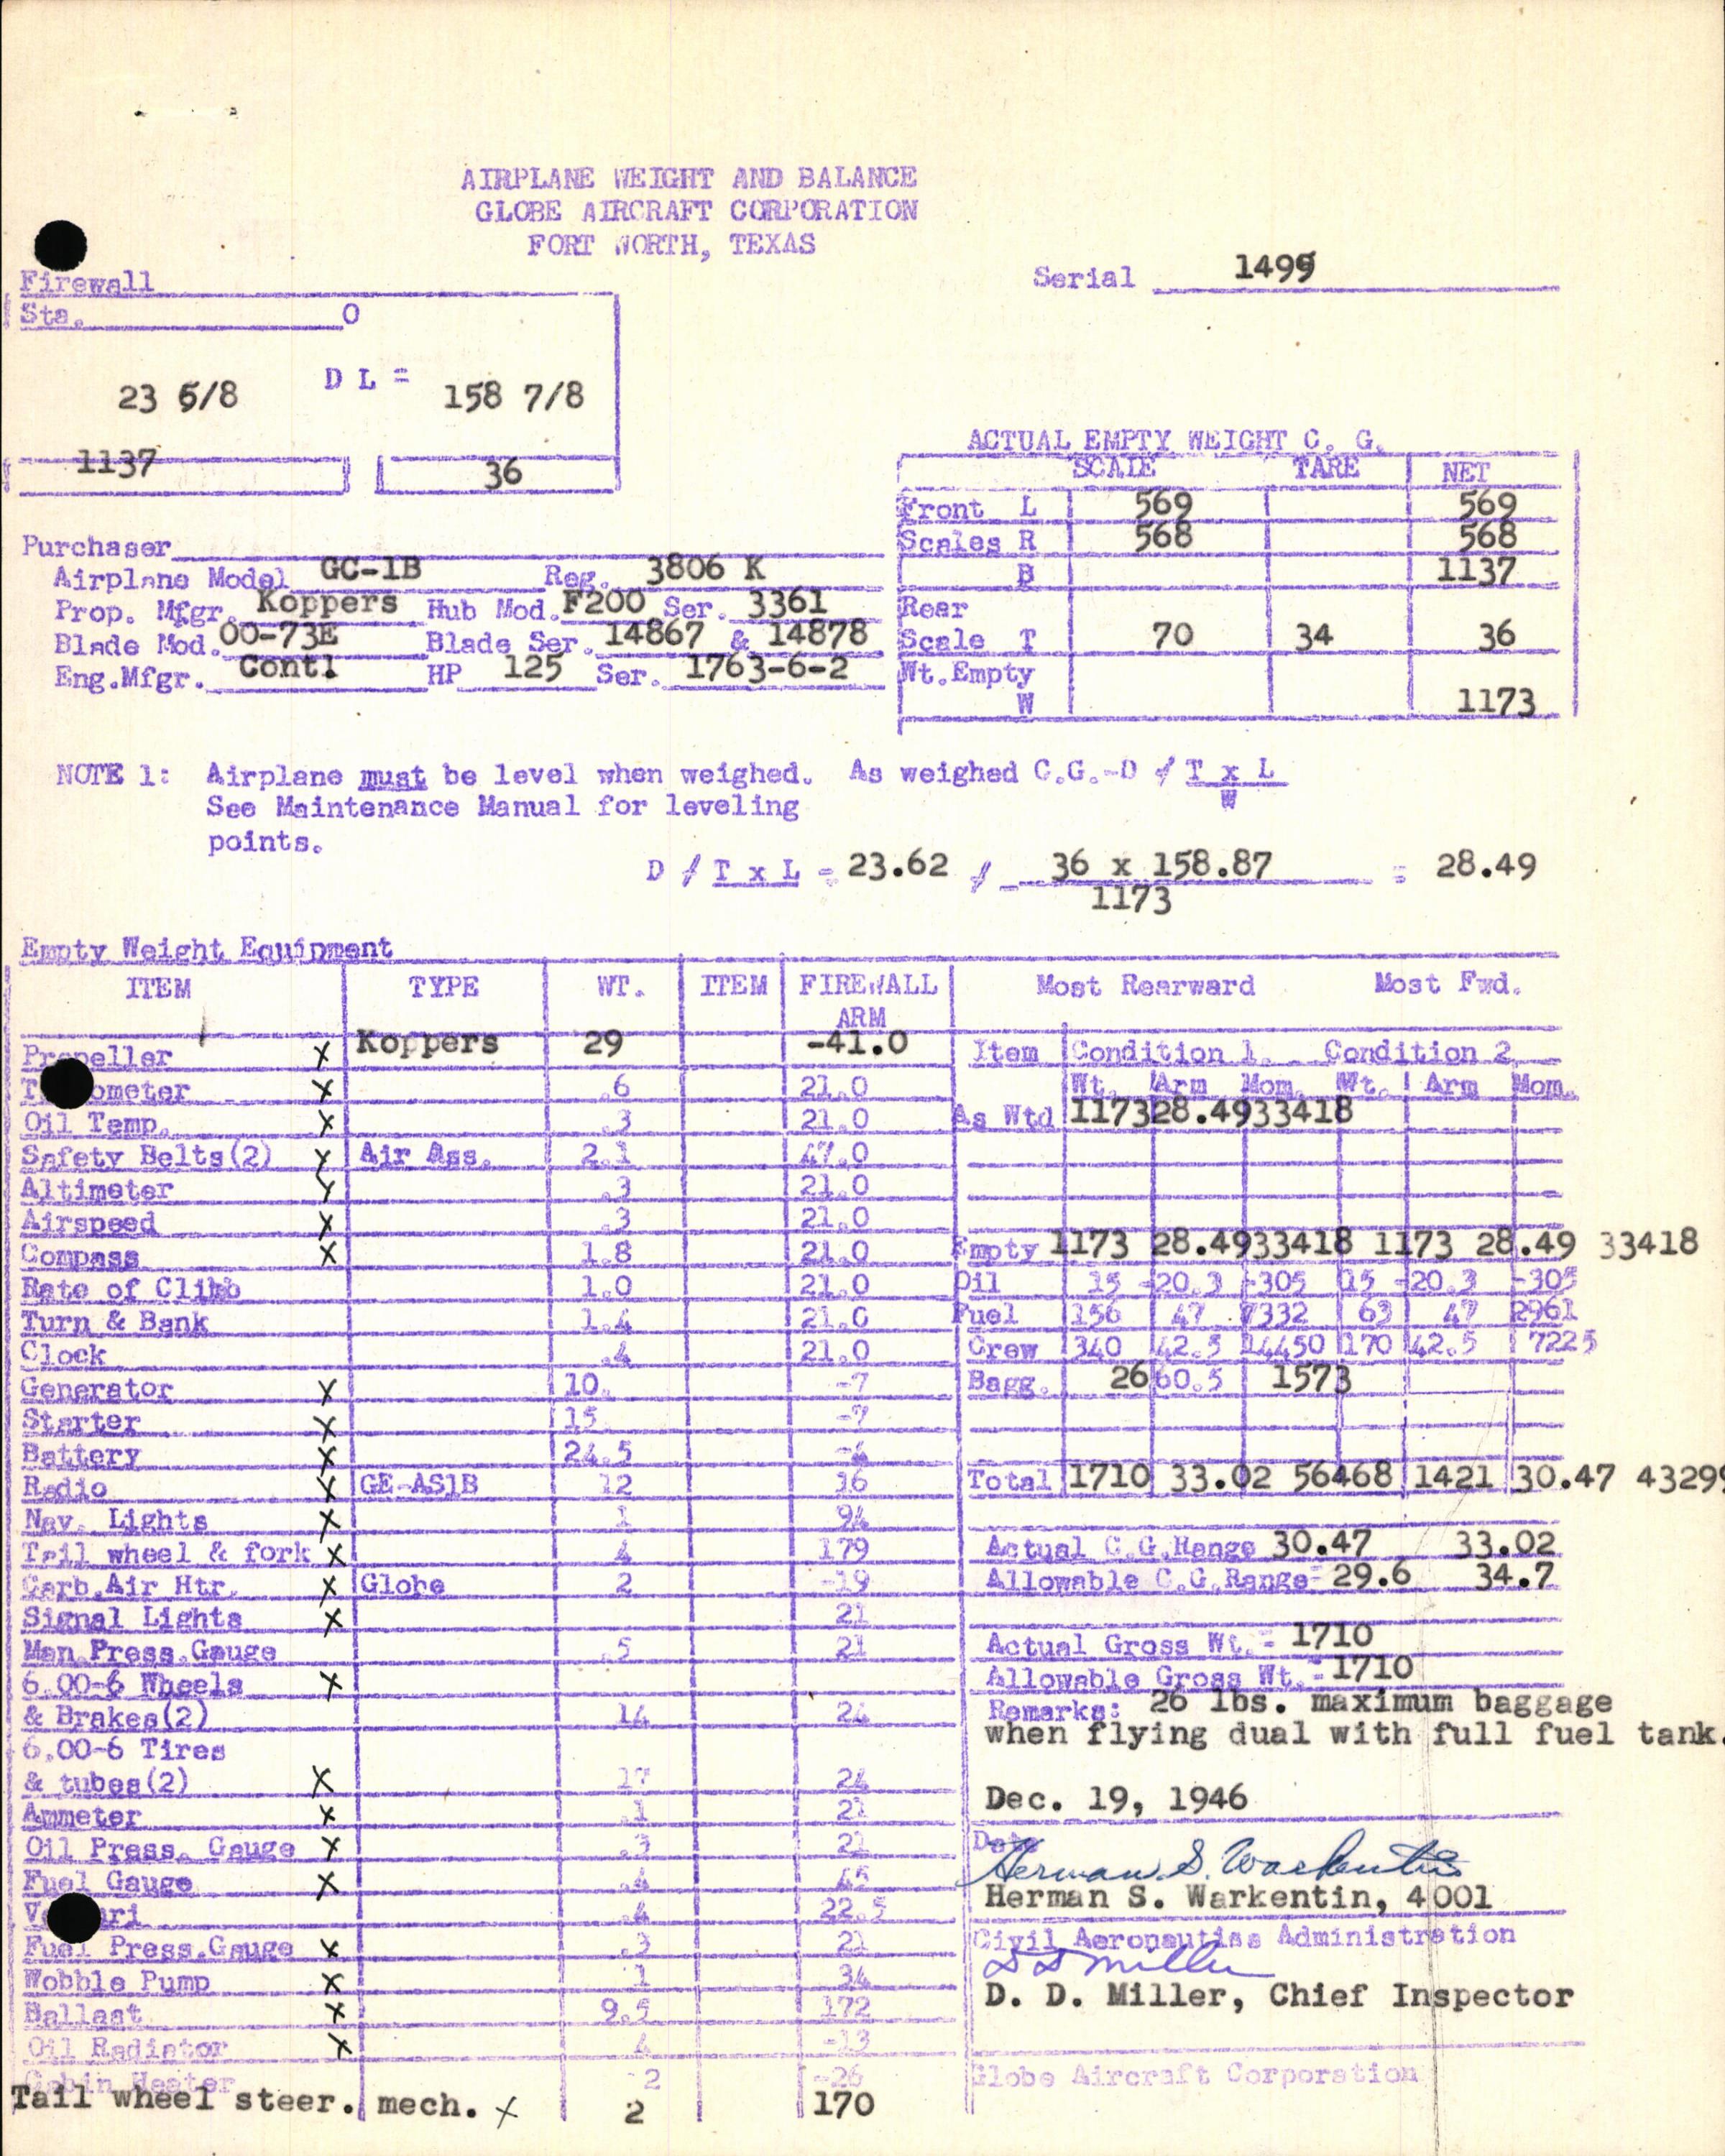 AIRPLANE WEIGHT AND BALANCE
GLOBE AIRCRAFT CORPORATION
FORT WORTH, TEXAS
Serial 1499
Firewall
Sta. 0
23 5/8 D L = 158 7/8
1137 36
ACTUAL EMPTY WEIGHT C. G.
SCALE TARE NET
Front L 569 569
Scales R 568 568
B 1137
Rear
Scale T 70 34 36
Wt.Empty
W 1173
Purchaser
Airplane Model GC-1B Reg. 3806 K
Prop. Mfgr. Koppers Hub Mod. F200 Ser. 3361
Blade Mod. 00-73E Blade Ser. 14867 & 14878
Eng.Mfgr. Contl HP 125 Ser. 1763-6-2
NOTE 1: Airplane must be level when weighed. As weighed C.G.-D / T x L
W
See Maintenance Manual for leveling
points.
D / T x L = 23.62 / 36 x 158.87 = 28.49
1173
Empty Weight Equipment
ITEM TYPE WT. ITEM FIREWALL ARM
Propeller X Koppers 29 -41.0
ometer X .6 21.0
Oil Temp. X .3 21.0
Safety Belts(2) X Air Ass. 2.1 47.0
Altimeter X .3 21.0
Airspeed X .3 21.0
Compass X 1.8 21.0
Rate of Climb 1.0 21.0
Turn & Bank 1.4 21.0
Clock .4 21.0
Generator X 10. -7
Starter X 15 -7
Battery X 24.5 -4
Radio X GE-AS1B 12 16
Nav. Lights X 1 94
Tail wheel & fork X 4 179
Carb.Air Htr. X Globe 2 -19
Signal Lights X 21
Man.Press.Gauge .5 21
6.00-6 Wheels X
& Brakes(2) 14 24
6.00-6 Tires
& tubes(2) X 17 24
Ammeter X .1 21
Oil Press. Gauge X .3 21
Fuel Gauge X .4 45
.4 22.5
Fuel Press.Gauge X .3 21
Wobble Pump X 1 34
Ballast X 9.5 172
Oil Radiator X 4 -13
Cabin Heater 2 -26
Tail wheel steer. mech. X 2 170
Most Rearward Most Fwd.
Item Condition 1. Condition 2
Wt. Arm Mom. Wt. Arm Mom.
As Wtd 1173 28.49 33418
Empty 1173 28.49 33418 1173 28.49 33418
Oil 15 -20.3 -305 15 -20.3 -305
Fuel 156 47 7332 63 47 2961
Crew 340 42.5 14450 170 42.5 7225
Bagg. 26 60.5 1573
Total 1710 33.02 56468 1421 30.47 43299
Actual C.G.Range 30.47 33.02
Allowable C.G.Range- 29.6 34.7
Actual Gross Wt. = 1710
Allowable Gross Wt. = 1710
Remarks: 26 lbs. maximum baggage
when flying dual with full fuel tank.
Dec. 19, 1946
Date
Herman S. Warkentin
Herman S. Warkentin, 4001
Civil Aeronautiss Administration
D D Miller
D. D. Miller, Chief Inspector
Globe Aircraft Corporation